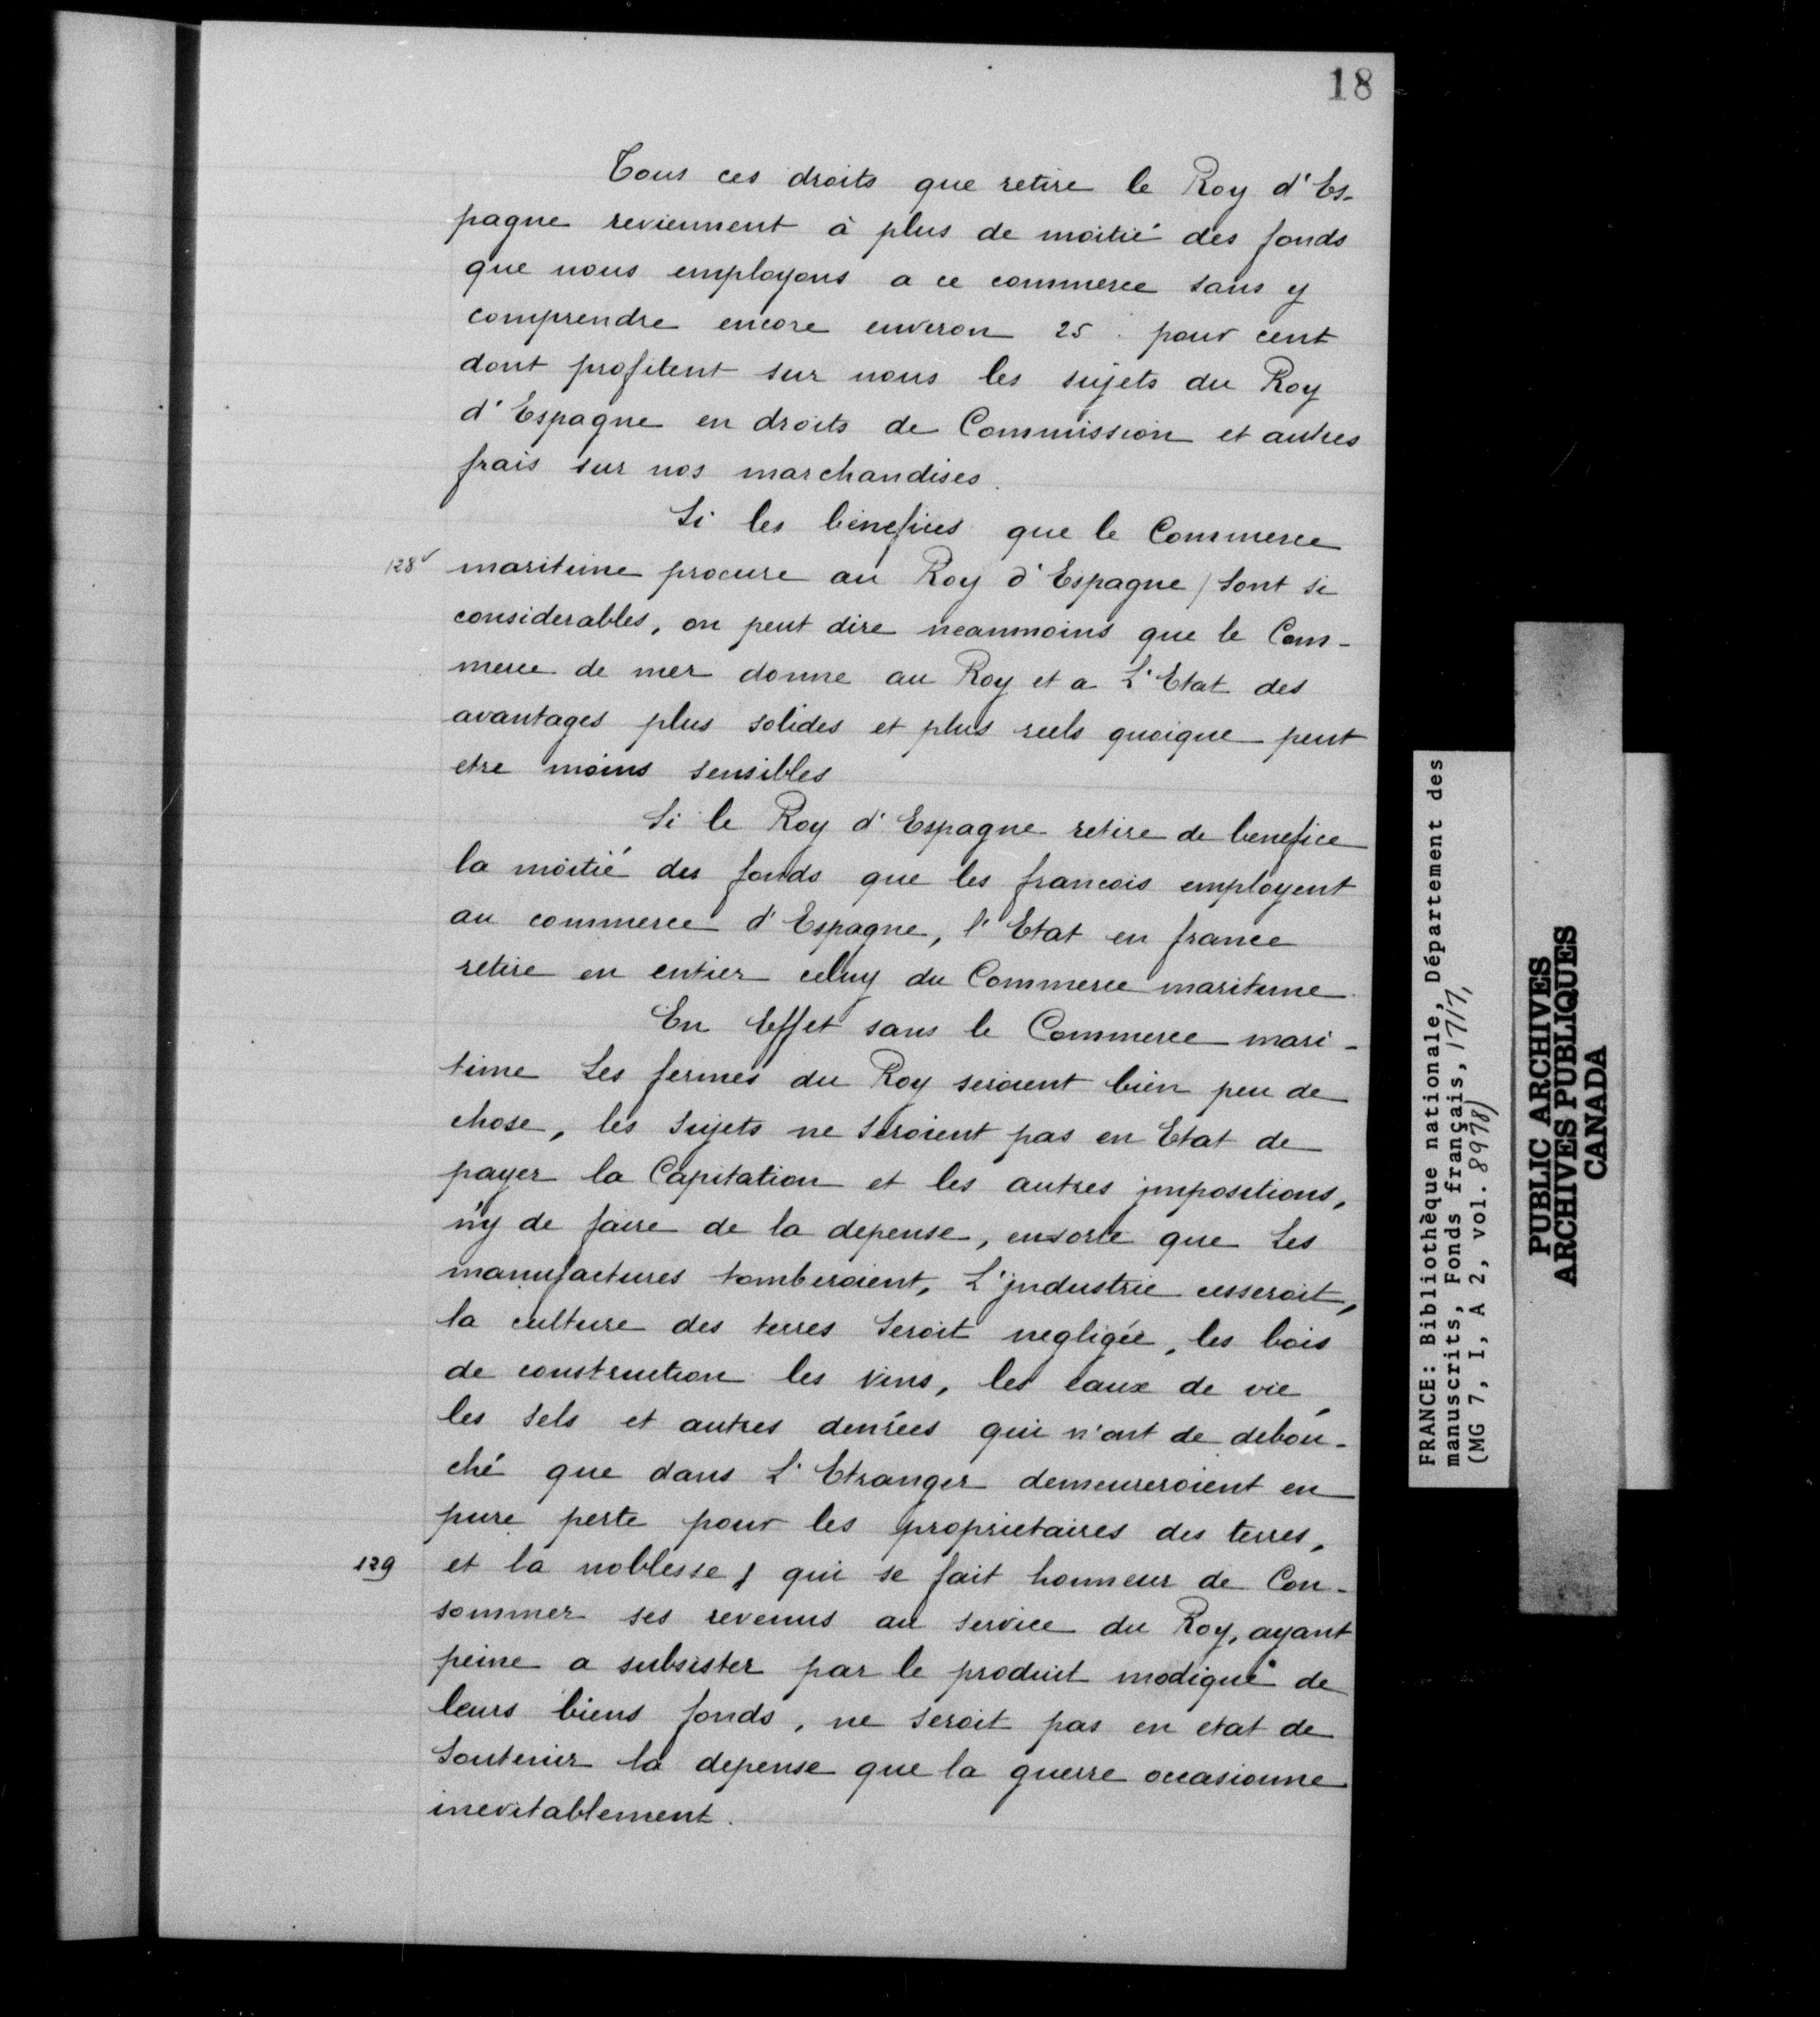 18
Tous ces droits que retire le Roy d'Es-
pagne reviennent à plus de moitié des fonds
que nous employons a ce commerce sans y
comprendre encore environ 25 pour cent
dont profitent sur nous les sujets du Roy
d'Espagne en droits de Commission et autres
frais sur nos marchandises.
Si les bénefices que le Commerce
128v maritime procure au Roy d'Espagne / Sont si
considerables, on peut dire neanmoins que le Com-
merce de mer donne au Roy et a L'Etat des
avantages plus solides et plus reels quoique peut
etre moins sensibles
Si le Roy d'Espagne retire de benefice
la moitié des fonds que les francois employent
au commerce d'Espagne, l'Etat en france
retire en entier celuy du Commerce maritime.
En Effet sans le Commerce mari-
time Les fermes du Roy seroient bien peu de
chose, les Sujets ne Seroient pas en Etat de
payer la Capitation et les autres jmpositions,
n'y de faire de la depense, ensorte que Les
manufactures tomberoient, L'jndustrie cesseroit,
la culture des terres Seroit negligée, les bois
de construction les vins, les eaux de vie,
les Sels et autres denrées qui n'ont de debou-
ché que dans L'Etranger demeureroient en
pure perte pour les proprietaires des terres,
129 et la noblesse / qui se fait honneur de Con-
sommer ses revenus au Service du Roy, ayant
peine a subsister par le produit modique de
leurs biens fonds, ne Seroit pas en etat de
Soutenir la depense que la guerre occasionne
inevitablement.
FRANCE: Bibliothèque nationale, Département des
manuscrits, Fonds français, 1717,
(MG 7, I, A 2, vol. 8978)
PUBLIC ARCHIVES
ARCHIVES PUBLIQUES
CANADA